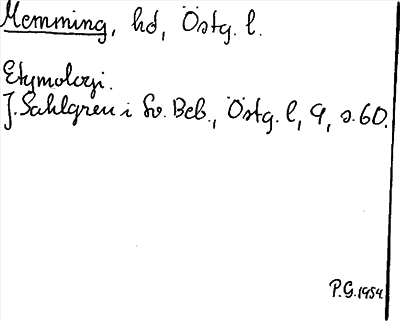 Memming, hd, Östg. l.
Etymologi.
J. Sahlgren i Sv. Beb., Östg. l, 9, s. 60.
P.G. 1954